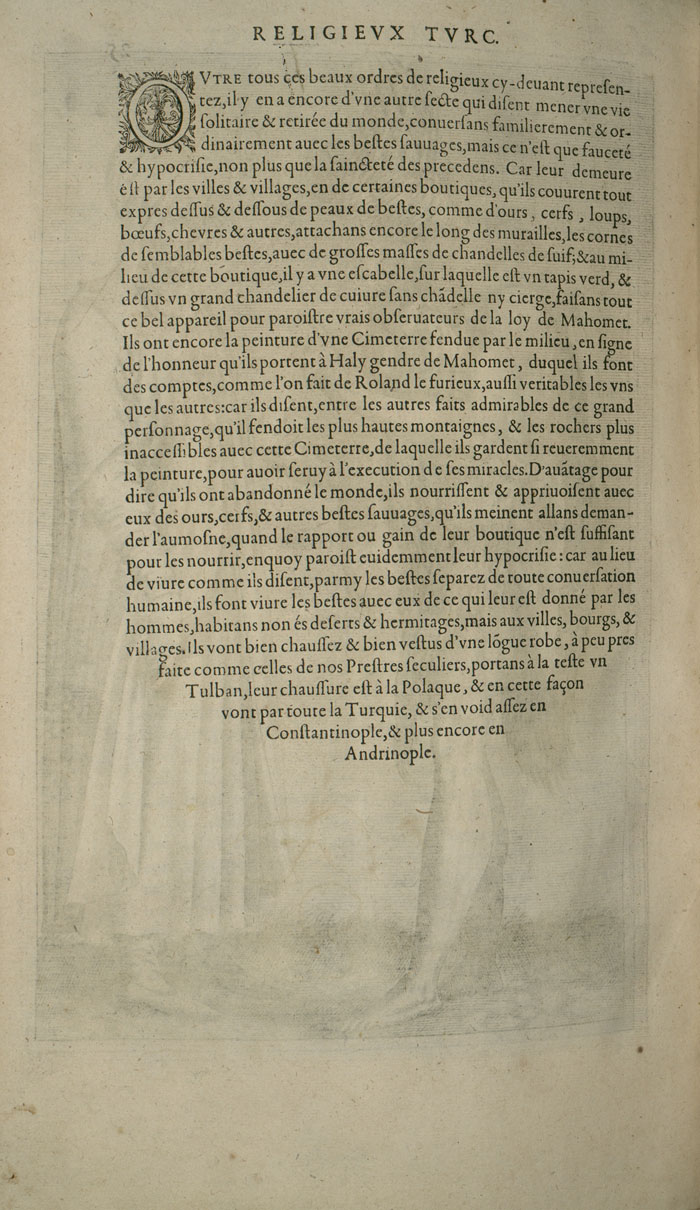 RELIGIEVX TVRC.
OVTRE tous ces beaux ordres de religieux cy-deuant represen-
tez, il y en a encore d'vne autre secte qui disent mener vne vie
solitaire & retirée du monde, conuersans familierement & or-
dinairement auec les bestes sauuages, mais ce n'est que fauceté
& hypocrisie, non plus que la saincteté des precedens. Car leur demeure
est par les villes & villages, en de certaines boutiques, qu'ils couurent tout
expres dessus & dessous de peaux de bestes, comme d'ours, cerfs, loups,
bœufs, chevres & autres, attachans encore le long des murailles, les cornes
de semblables bestes, auec de grosses masses de chandelles de suif; & au mi-
lieu de cette boutique, il y a vne escabelle, sur laquelle est vn tapis verd, &
dessus vn grand chandelier de cuiure sans chãdelle ny cierge, faisans tout
ce bel appareil pour paroistre vrais obseruateurs de la loy de Mahomet.
Ils ont encore la peinture d'vne Cimeterre fendue par le milieu, en signe
de l'honneur qu'ils portent à Haly gendre de Mahomet, duquel ils font
des comptes, comme l'on fait de Roland le furieux, aussi veritables les vns
que les autres: car ils disent, entre les autres faits admirables de ce grand
personnage, qu'il fendoit les plus hautes montaignes, & les rochers plus
inaccessibles auec cette Cimeterre, de laquelle ils gardent si reueremment
la peinture, pour auoir seruy à l'execution de ses miracles. D'auãtage pour
dire qu'ils ont abandonné le monde, ils nourrissent & appriuoisent auec
eux des ours, cerfs, & autres bestes sauuages, qu'ils meinent allans deman-
der l'aumosne, quand le rapport ou gain de leur boutique n'est suffisant
pour les nourrir, enquoy paroist euidemment leur hypocrisie: car au lieu
de viure comme ils disent, parmy les bestes separez de toute conuersation
humaine, ils font viure les bestes auec eux de ce qui leur est donné par les
hommes, habitans non és deserts & hermitages, mais aux villes, bourgs, &
villages. Ils vont bien chaussez & bien vestus d'vne lõgue robe, à peu pres
faite comme celles de nos Prestres seculiers, portans à la teste vn
Tulban, leur chaussure est à la Polaque, & en cette façon
vont par toute la Turquie, & s'en void assez en
Constantinople, & plus encore en
Andrinople.